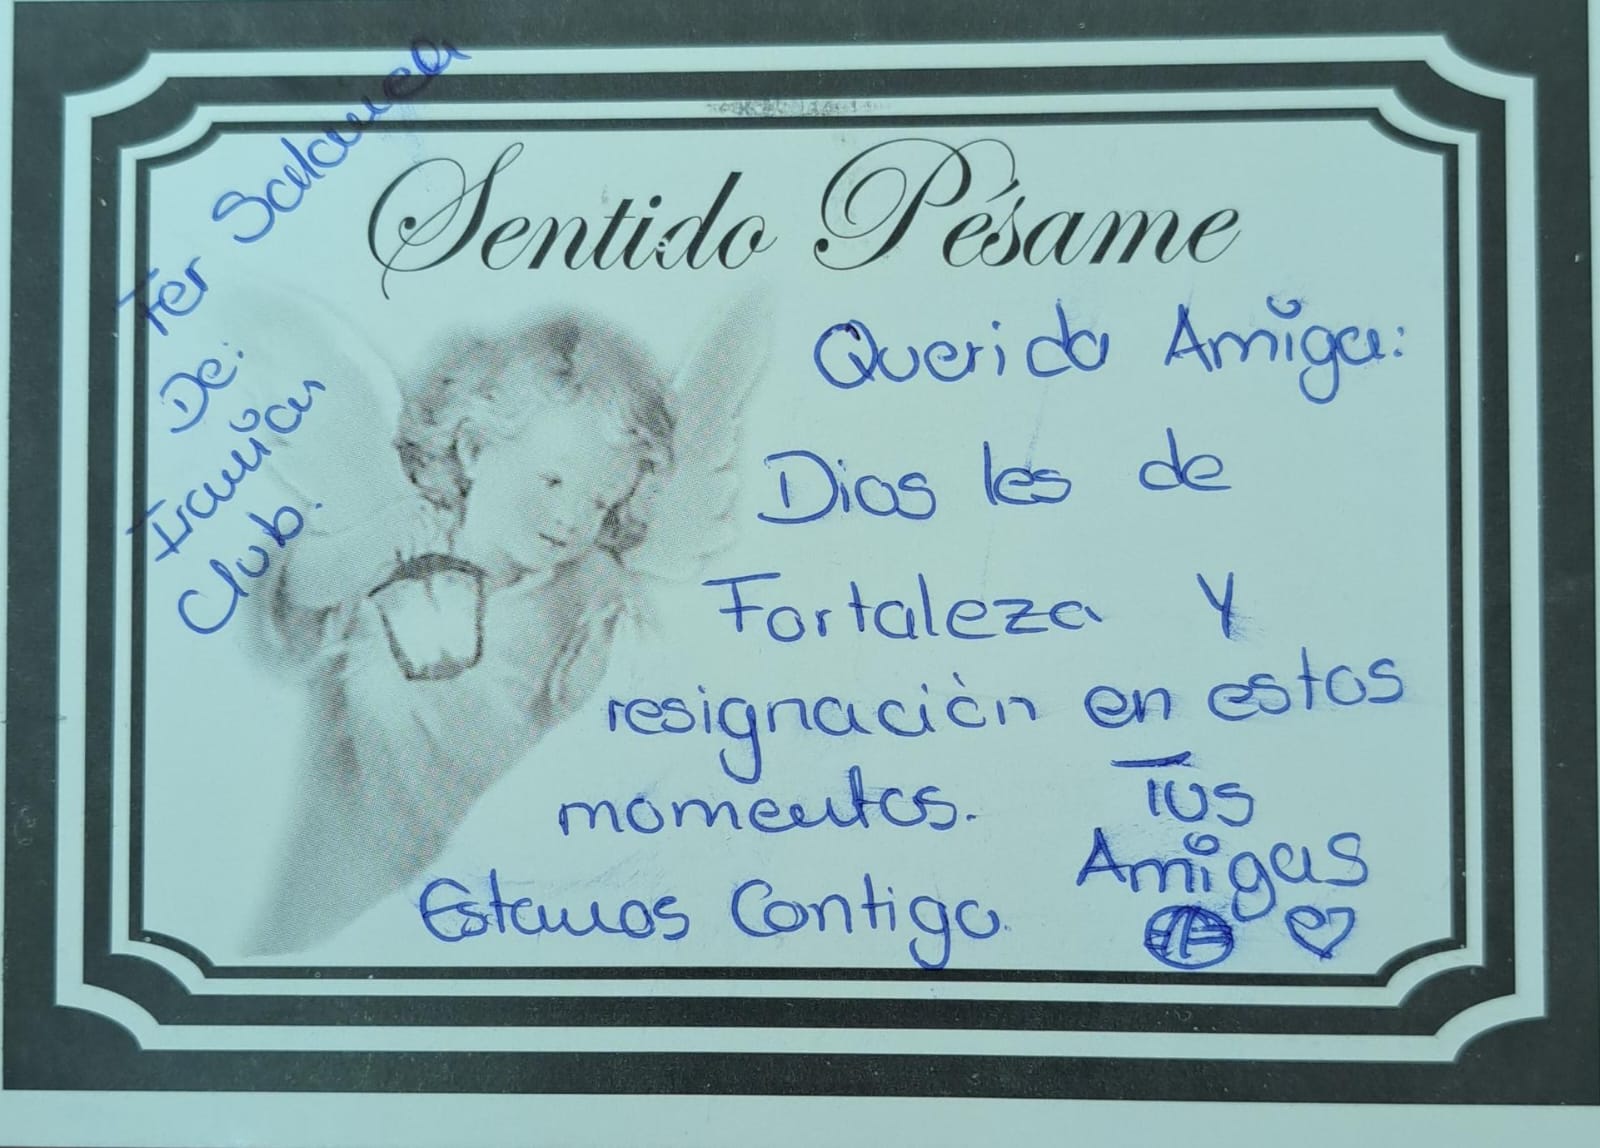 Sentido Pésame
Fer
De:
Club.
Querida Amiga:
Dios les de
Fortaleza Y
resignación en estos
momentos.
Tus
Amigas
Estamos Contigo.